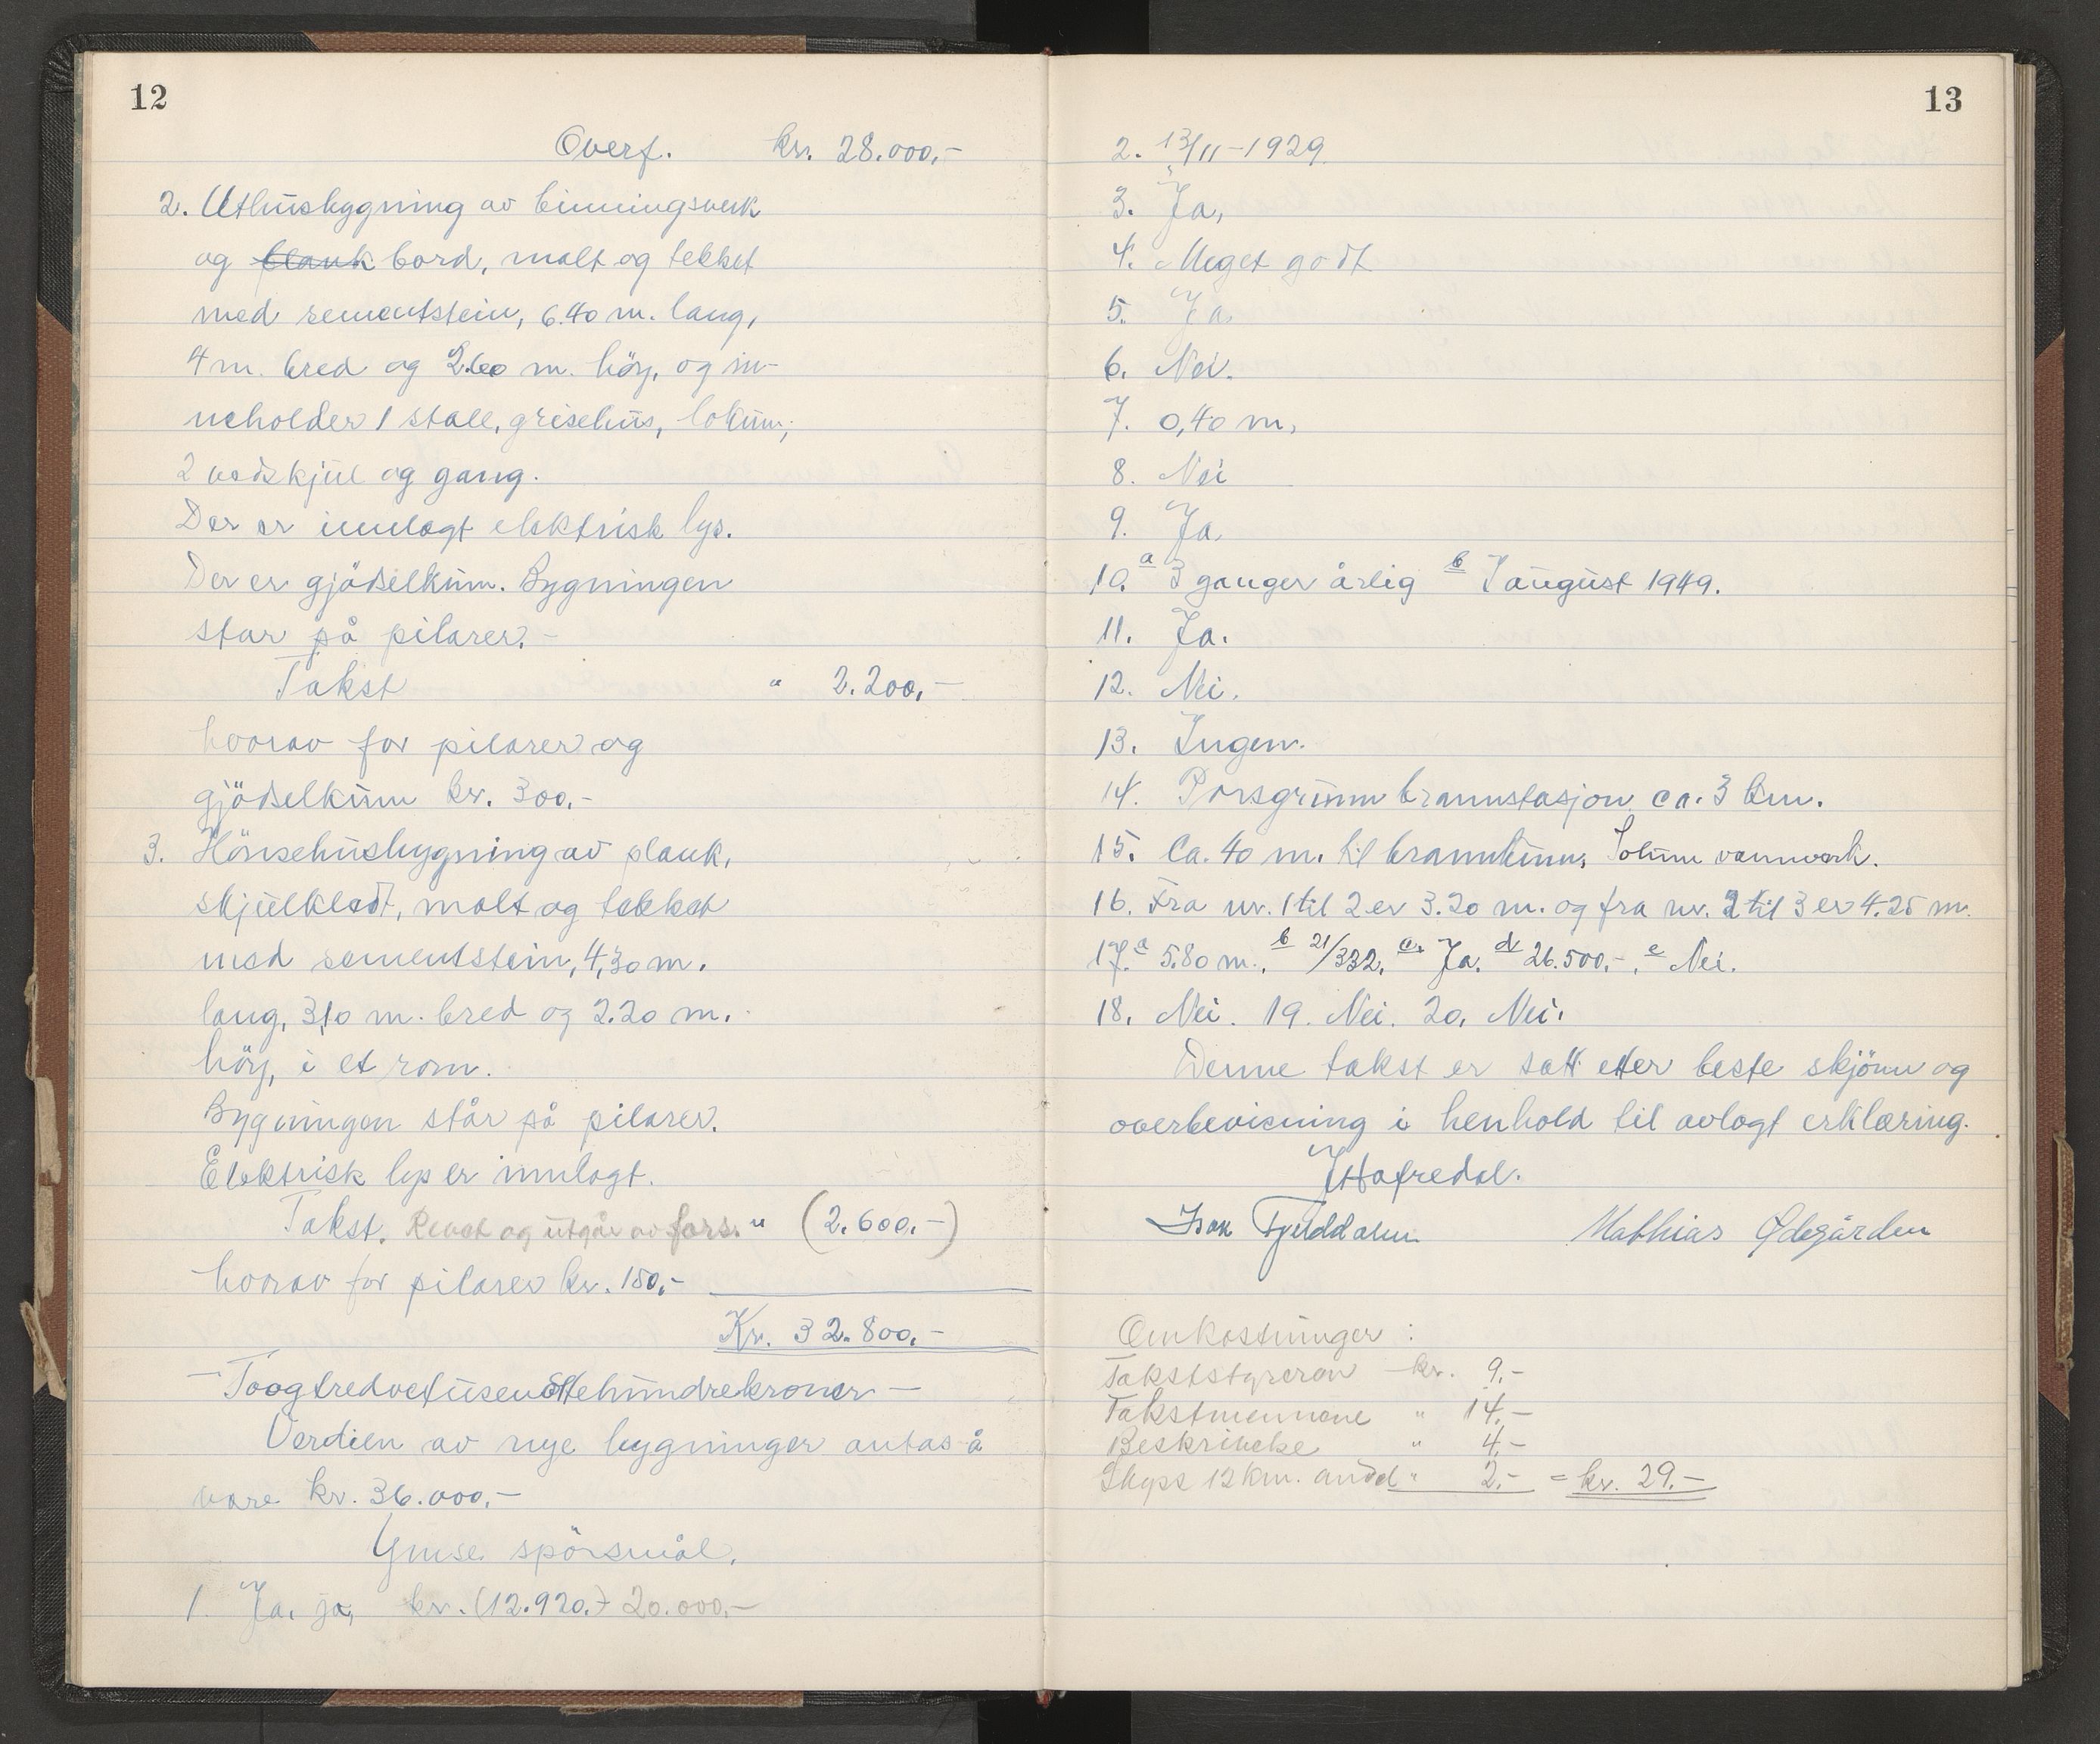 12
Overf. kr. 28.000,-
2. Uthusbygning av binningsverk
og plank bord, malt og tekket
med sementstein, 6.40 m. lang,
4 m. bred og 2.60 m. höy, og in-
neholder 1 stall, grisehus, lokum,
2 vedskjul og gang.
Der er innlagt elektrisk lys.
Der er gjödselkum. Bygningen
star på pilarer. -
Takst " 2.200,-
hvorav for pilarer og
gjödselkum kr. 300,-
3. Hönsehusbygning av plank,
skjulkledt, malt og tekket
med sementstein, 4,30 m.
lang, 3,10 m. bred og 2.20 m.
höy, i et rom.
Bygningen står på pilarer.
Elektrisk lys er innlagt.
Takst. Revet og utgår av fors. " (2.600,-)
hvorav for pilarer kr. 150,-
Kr. 32.800,-
- Toogtredvetusenåttehundrekroner -
Verdien av nye bygninger antas å
være kr. 36.000,-
Ymse spörsmål.
1. Ja. ja, kr. (12.920.-) 20.000,-
13
2. 13/11-1929
3. Ja,
4. Meget godt
5. Ja
6. Nei.
7. 0,40 m,
8. Nei
9. Ja
10. a 3 ganger årlig b I august 1949.
11. Ja.
12. Nei.
13. Ingen.
14. Porsgrunn brannstasjon ca. 3 km.
15. Ca. 40 m. til brannkum, Solum vannverk.
16. Fra nr. 1 til 2 er 3.20 m. og fra nr. 2 til 3 er 4.25 m.
17. a 5.80 m., b 21/332, c. Ja. d 26.500,-, e Nei.
18. Nei. 19. Nei. 20. Nei.
Denne takst er satt etter beste skjönn og
overbevisning i henhold til avlagt erklæring.
J Hafredal.
Isak Fjelddalen Mathias Ødegården
Omkostninger :
Takststyreren kr. 9,-
Takstmennene " 14,-
Beskrivelse " 4,-
Skyss 12 km. " 2,- = kr. 29,-